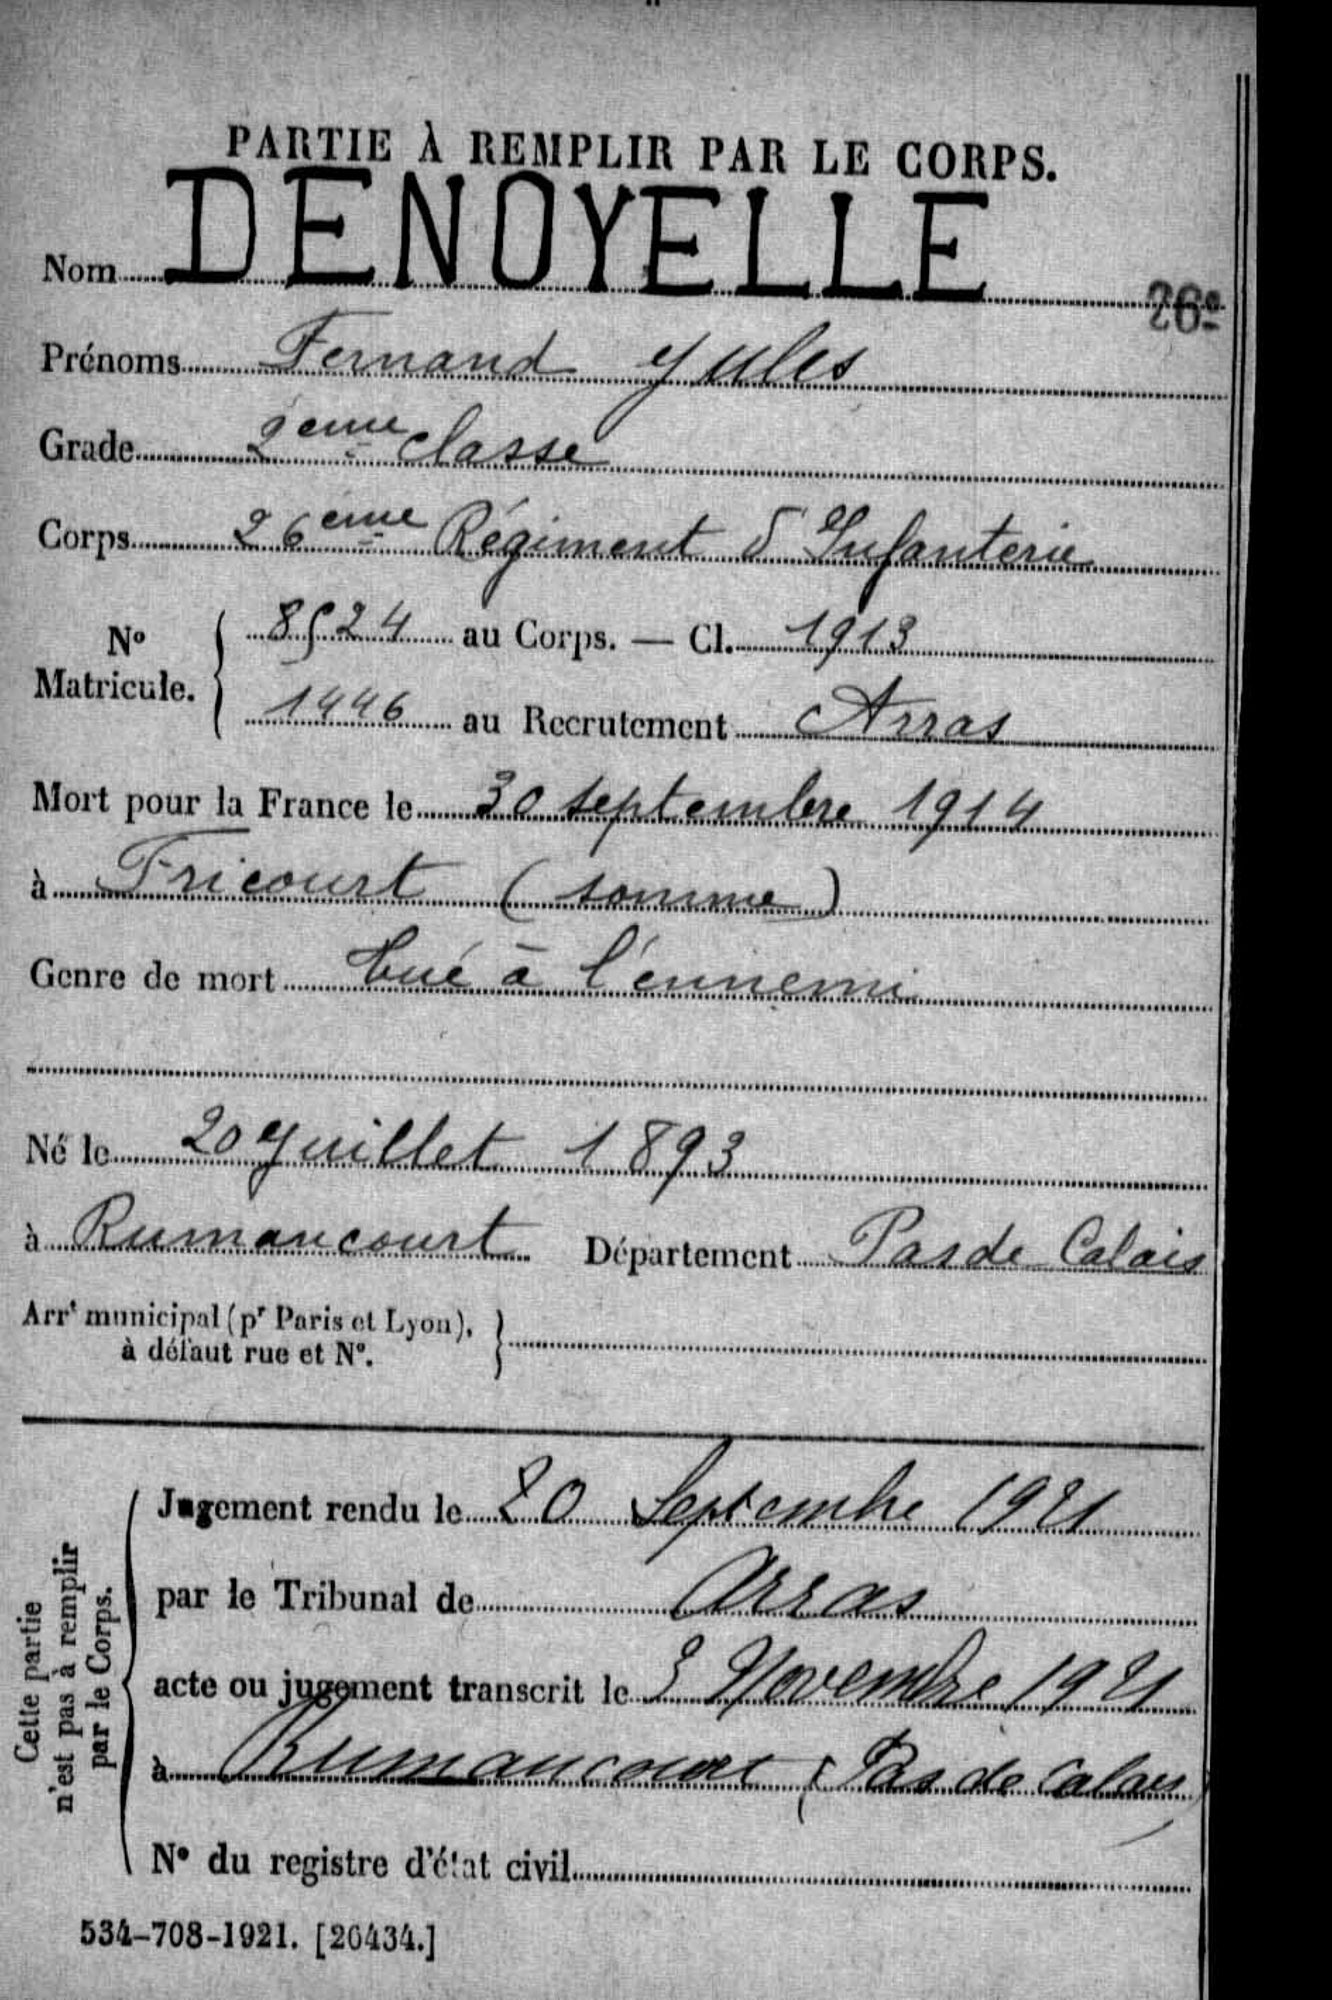 PARTIE À REMPLIR PAR LE CORPS.
Nom DENOYELLE
26e
Prénoms Fernand Jules
Grade 2eme classe
Corps 26eme Régiment d'Infanterie
No Matricule. { 8524 au Corps. — Cl. 1913
1446 au Recrutement Arras
Mort pour la France le 30 septembre 1914
à Fricourt (Somme)
Genre de mort tué à l'ennemi
Né le 20 Juillet 1893
à Rumaucourt Département Pas de Calais
Arrt municipal (pr Paris et Lyon), }
à défaut rue et No.
Cette partie
n'est pas à remplir
par le Corps.
Jugement rendu le 20 Septembre 1921
par le Tribunal de Arras
acte ou jugement transcrit le 3 Novembre 1921
à Rumaucourt (Pas de Calais)
No du registre d'état civil
534-708-1921. [26434.]